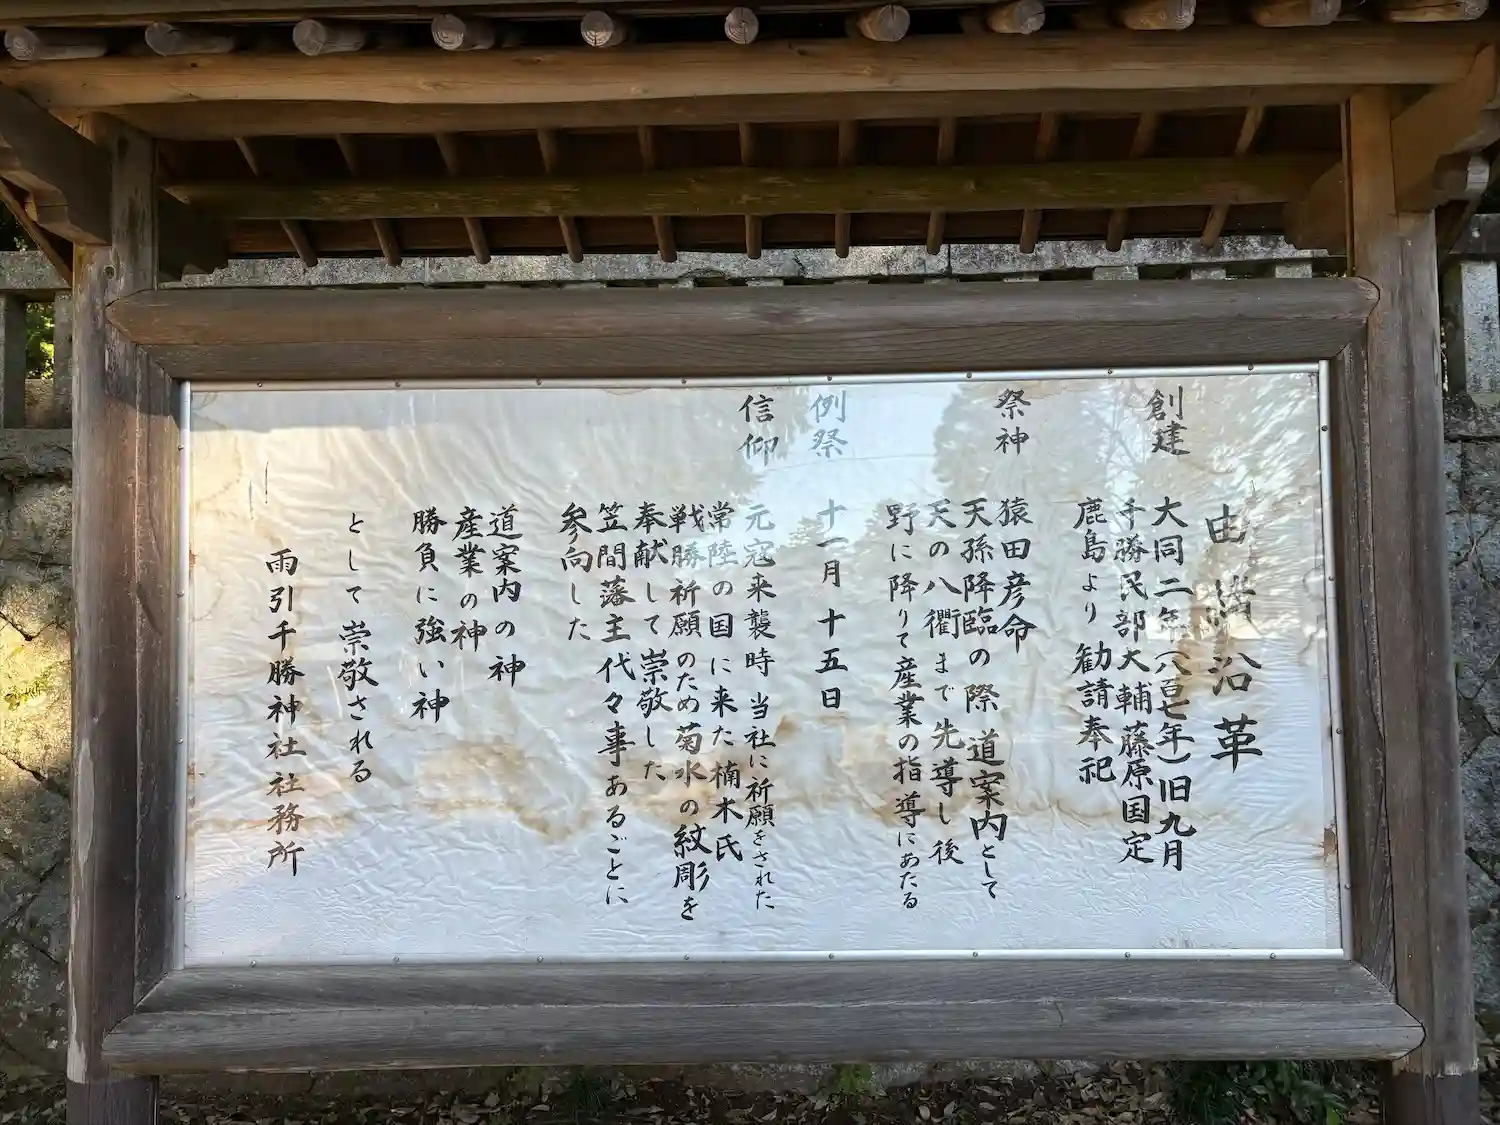 由緒沿革
創建 大同二年(八百七年)旧九月
千勝民部大輔藤原国定
鹿島より勧請奉祀
祭神 猿田彦命
天孫降臨の際 道案内として
天の八衢まで先導し後
野に降りて産業の指導にあたる
例祭 十一月十五日
信仰 元寇来襲時 当社に祈願をされた
常陸の国に来た楠木氏
戦勝祈願のため菊水の紋彫を
奉献して崇敬した
笠間藩主代々事あるごとに
参向した
道案内の神
産業の神
勝負に強い神
として崇敬される
雨引千勝神社社務所